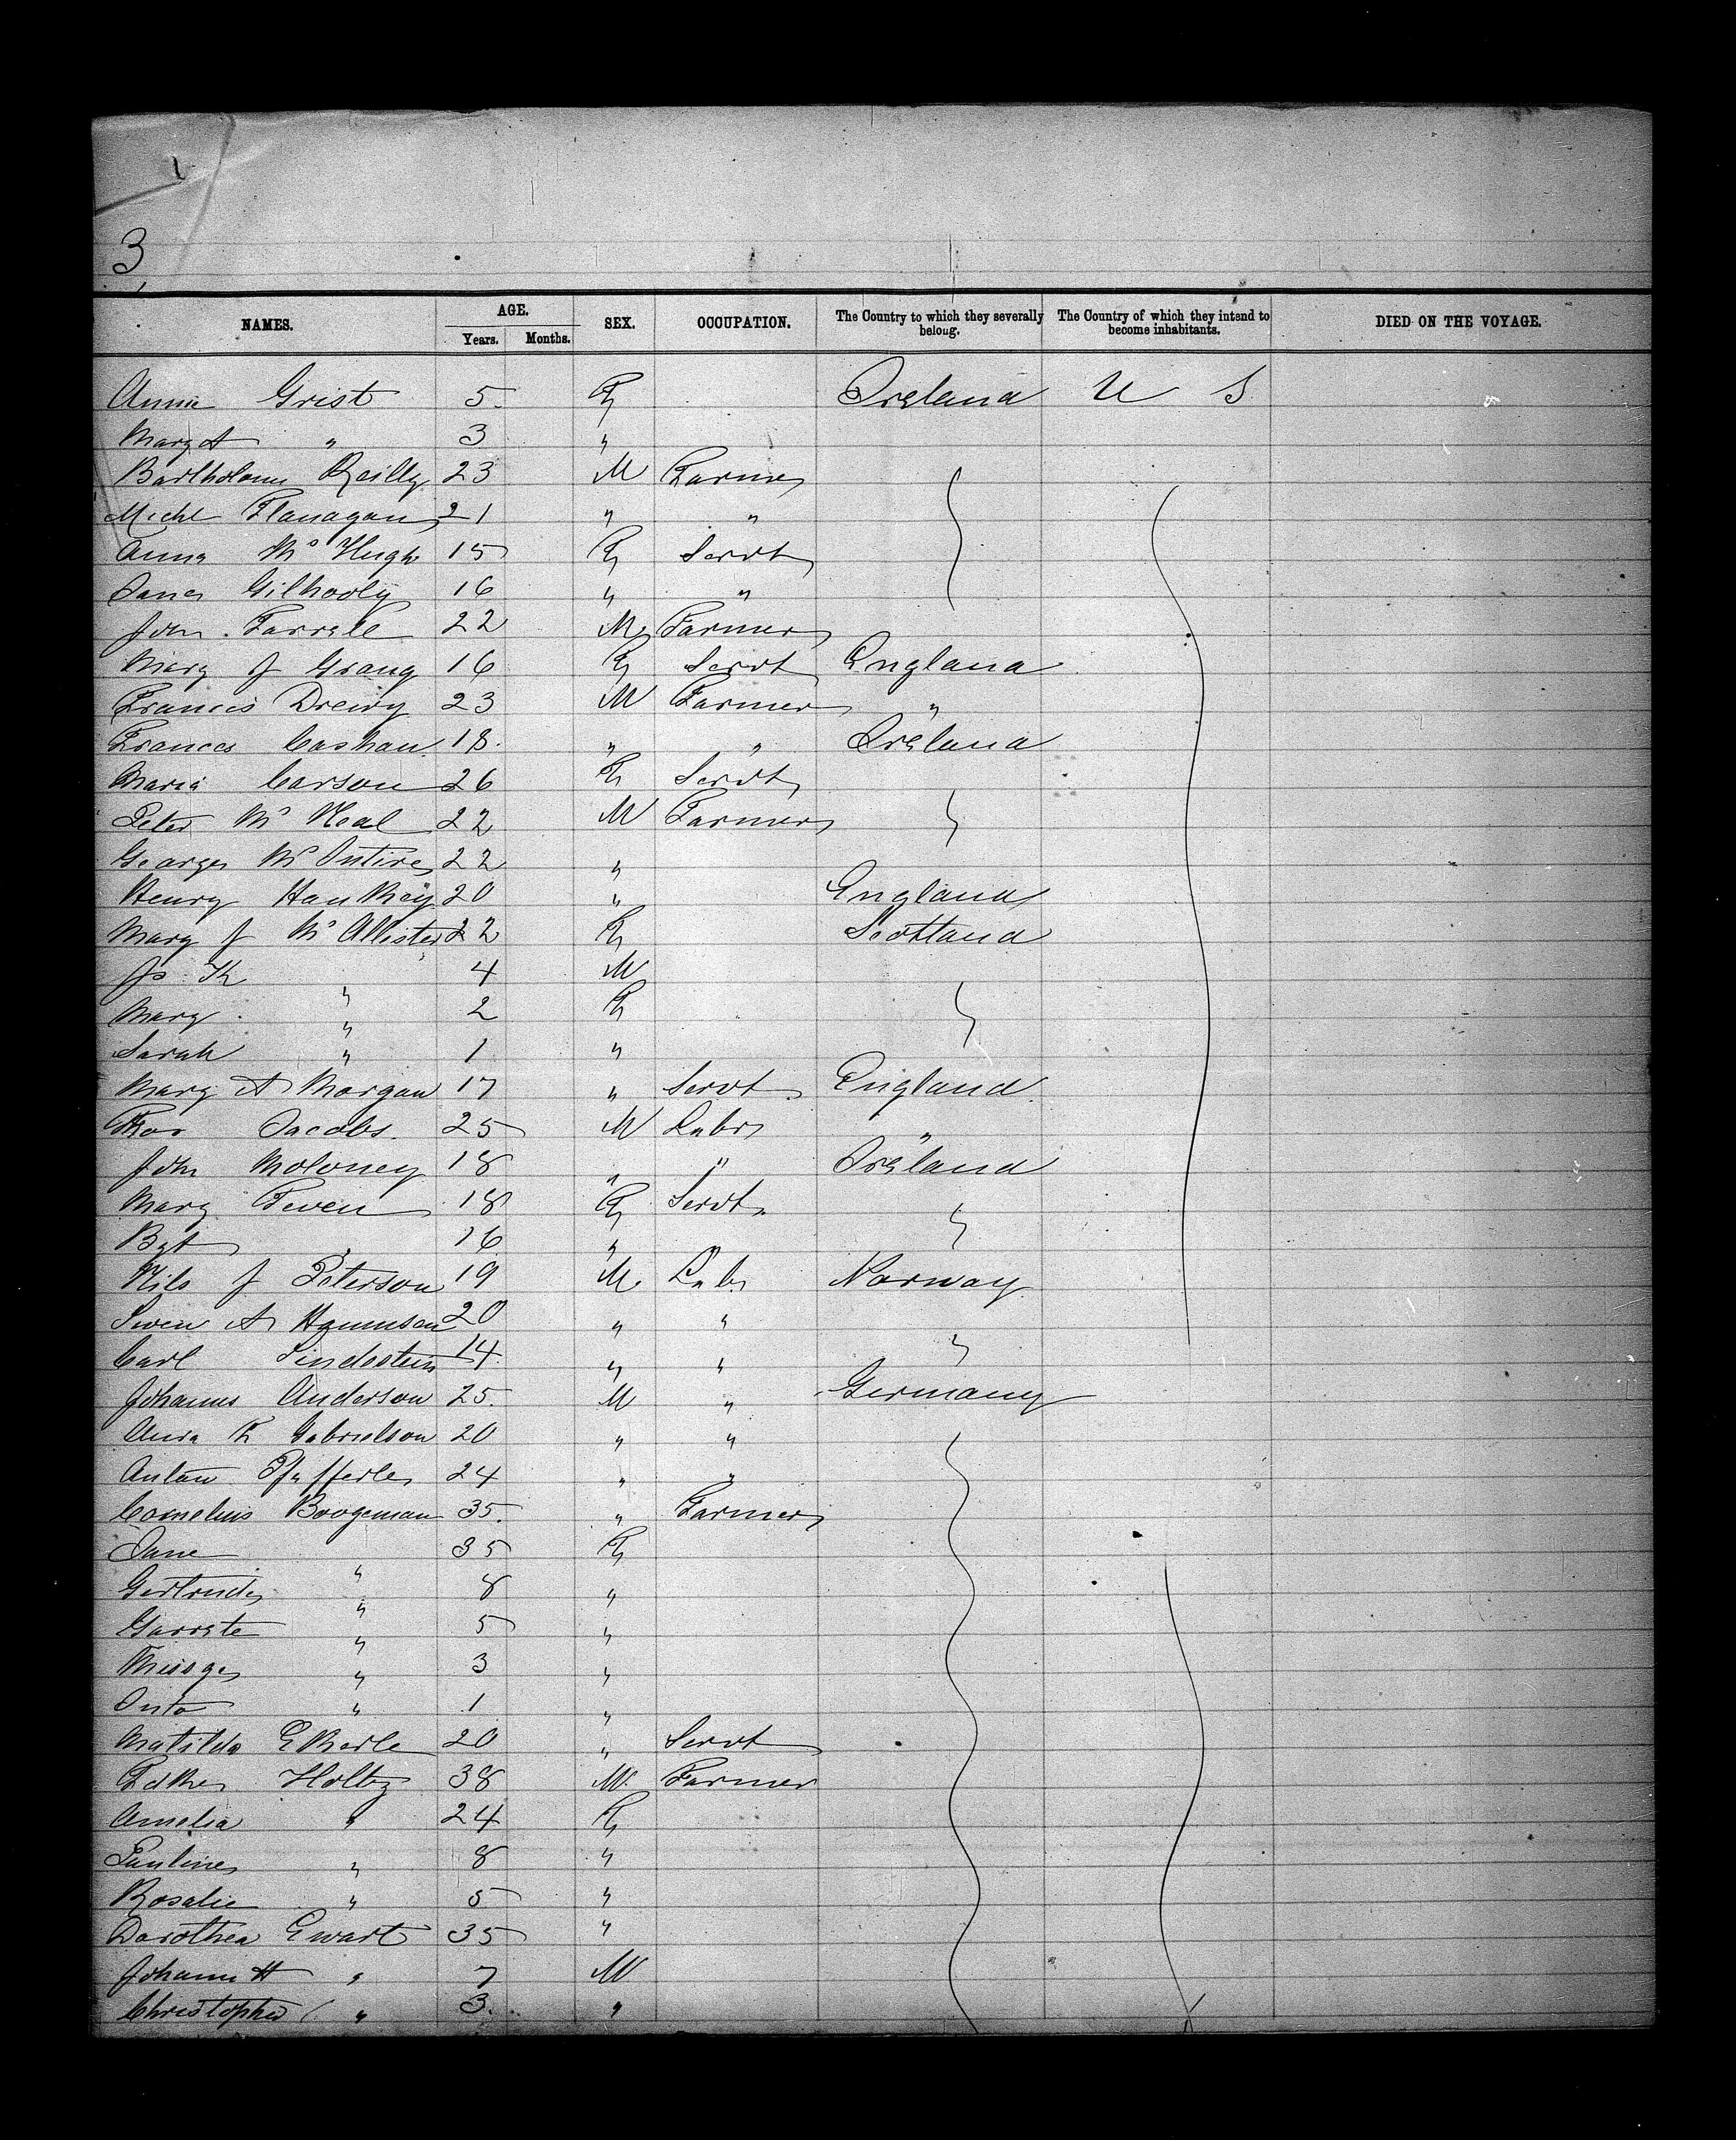 3
NAMES. AGE. SEX. OCCUPATION. The Country to which they severally belong. The Country of which they intend to become inhabitants. DIED ON THE VOYAGE.
Years. Months.
Annie Grist 5 F Ireland U S
Mary A " 3 "
Bartholomew Reilly 23 M Farmer
Michl Flanagan 21 " "
Anna McHugh 15 F Servt
Jane Gilhooly 16 " "
John Farrell 22 M Farmer
Mary J 16 F Servt England
Francis 23 M Farmer "
Frances Cashan 18 " " Ireland
Maria Carson 26 F Servt
Peter McNeal 22 M Farmer
George McIntire 22 "
Henry 20 " England
Mary J McAllister 22 F Scotland
Js K " 4 M
Mary " 2 F
Sarah " 1 "
Mary A Morgan 17 " Servt England
Thos Jacobs 25 M Labr "
John Moloney 18 " " Ireland
Mary 18 F Servt
Bgt " 16 " "
Nils J Peterson 19 M Labr Norway
Swen A 20 " "
Carl Lindestein 14 " "
Johannes Anderson 25 M " Germany
F Gabrielson 20 " "
Anton Pfefferle 24 " "
Cornelius Boogeman 35 " Farmer
Jane " 35 F
Gertrude " 8 "
Garrete " 5 "
" 3 "
" 1 "
Matilda 20 " Servt
38 M Farmer
Amelia " 24 F
Pauline " 8 "
Rosalie " 5 "
Dorothea Ewart 35 "
Johann H " 7 M
Christopher " 3 "